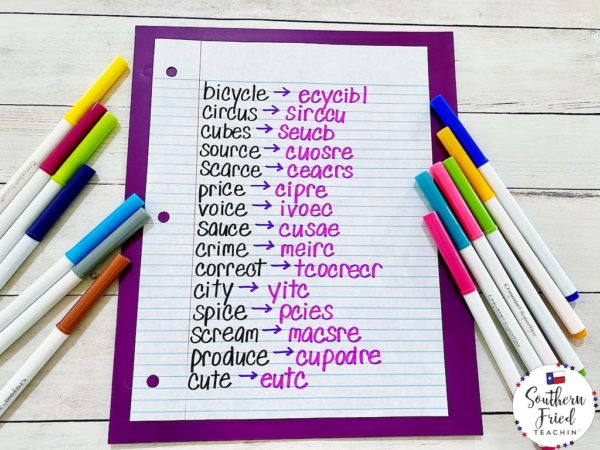 bicycle → ecycibl
circus → sirccu
cubes → seucb
source → cuosre
scarce → ceacrs
price → cipre
voice → ivoec
sauce → cusae
crime → meirc
correct → tcocrecr
city → yitc
spice → pcies
scream → macsre
produce → cupodre
cute → eutc
Southern
Fried
TEACHIN'